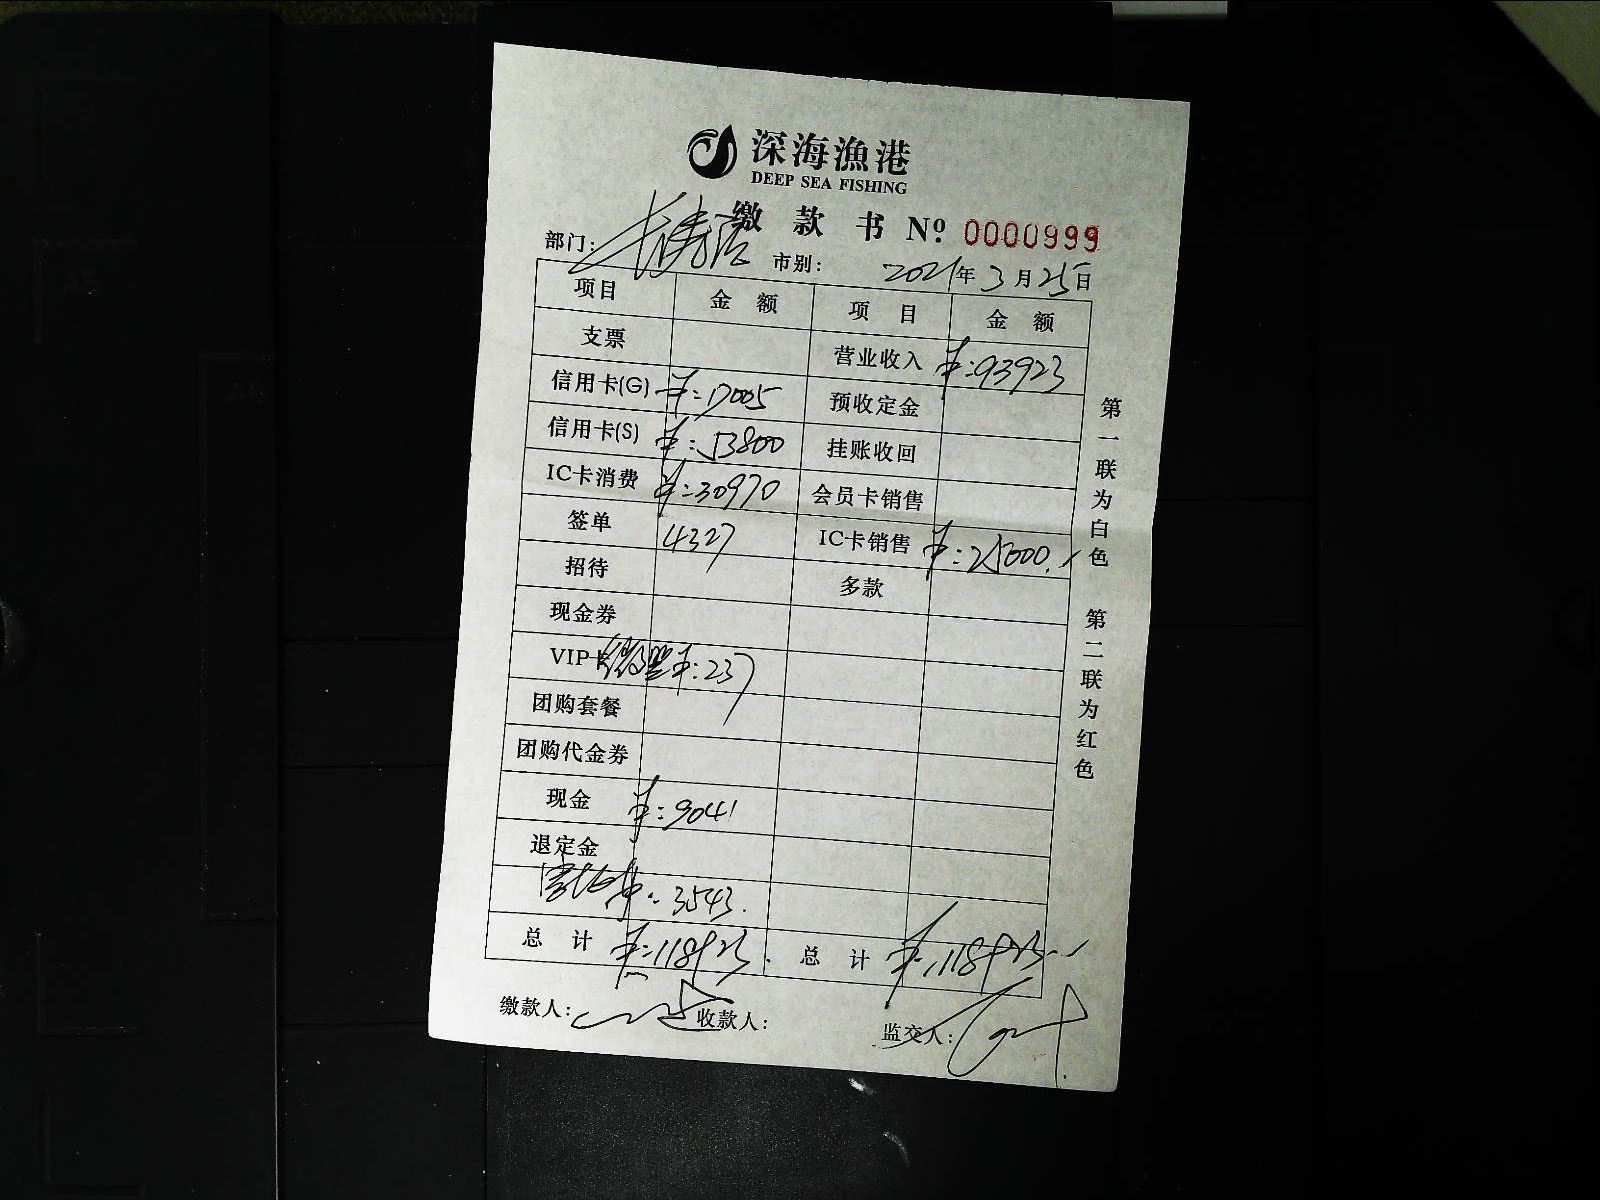 深海漁港
DEEP SEA FISHING
缴 款 书 Nº. 0000999
部门: 市别: 2021年3月25日
项目 金 额 项 目 金 额
支票 营业收入 ¥:93923
信用卡(G) ¥:17005 预收定金
信用卡(S) ¥:53800 挂账收回
IC卡消费 ¥:30970 会员卡销售
签单 4327 IC卡销售 ¥:25000.
招待 多款
现金券
VIP卡 微盟 ¥:237
团购套餐
团购代金券
现金 ¥:9041
退定金
¥:3543.
总 计 ¥:118923. 总 计 ¥:118923
缴款人: 收款人: 监交人:
第一联为白色 第二联为红色